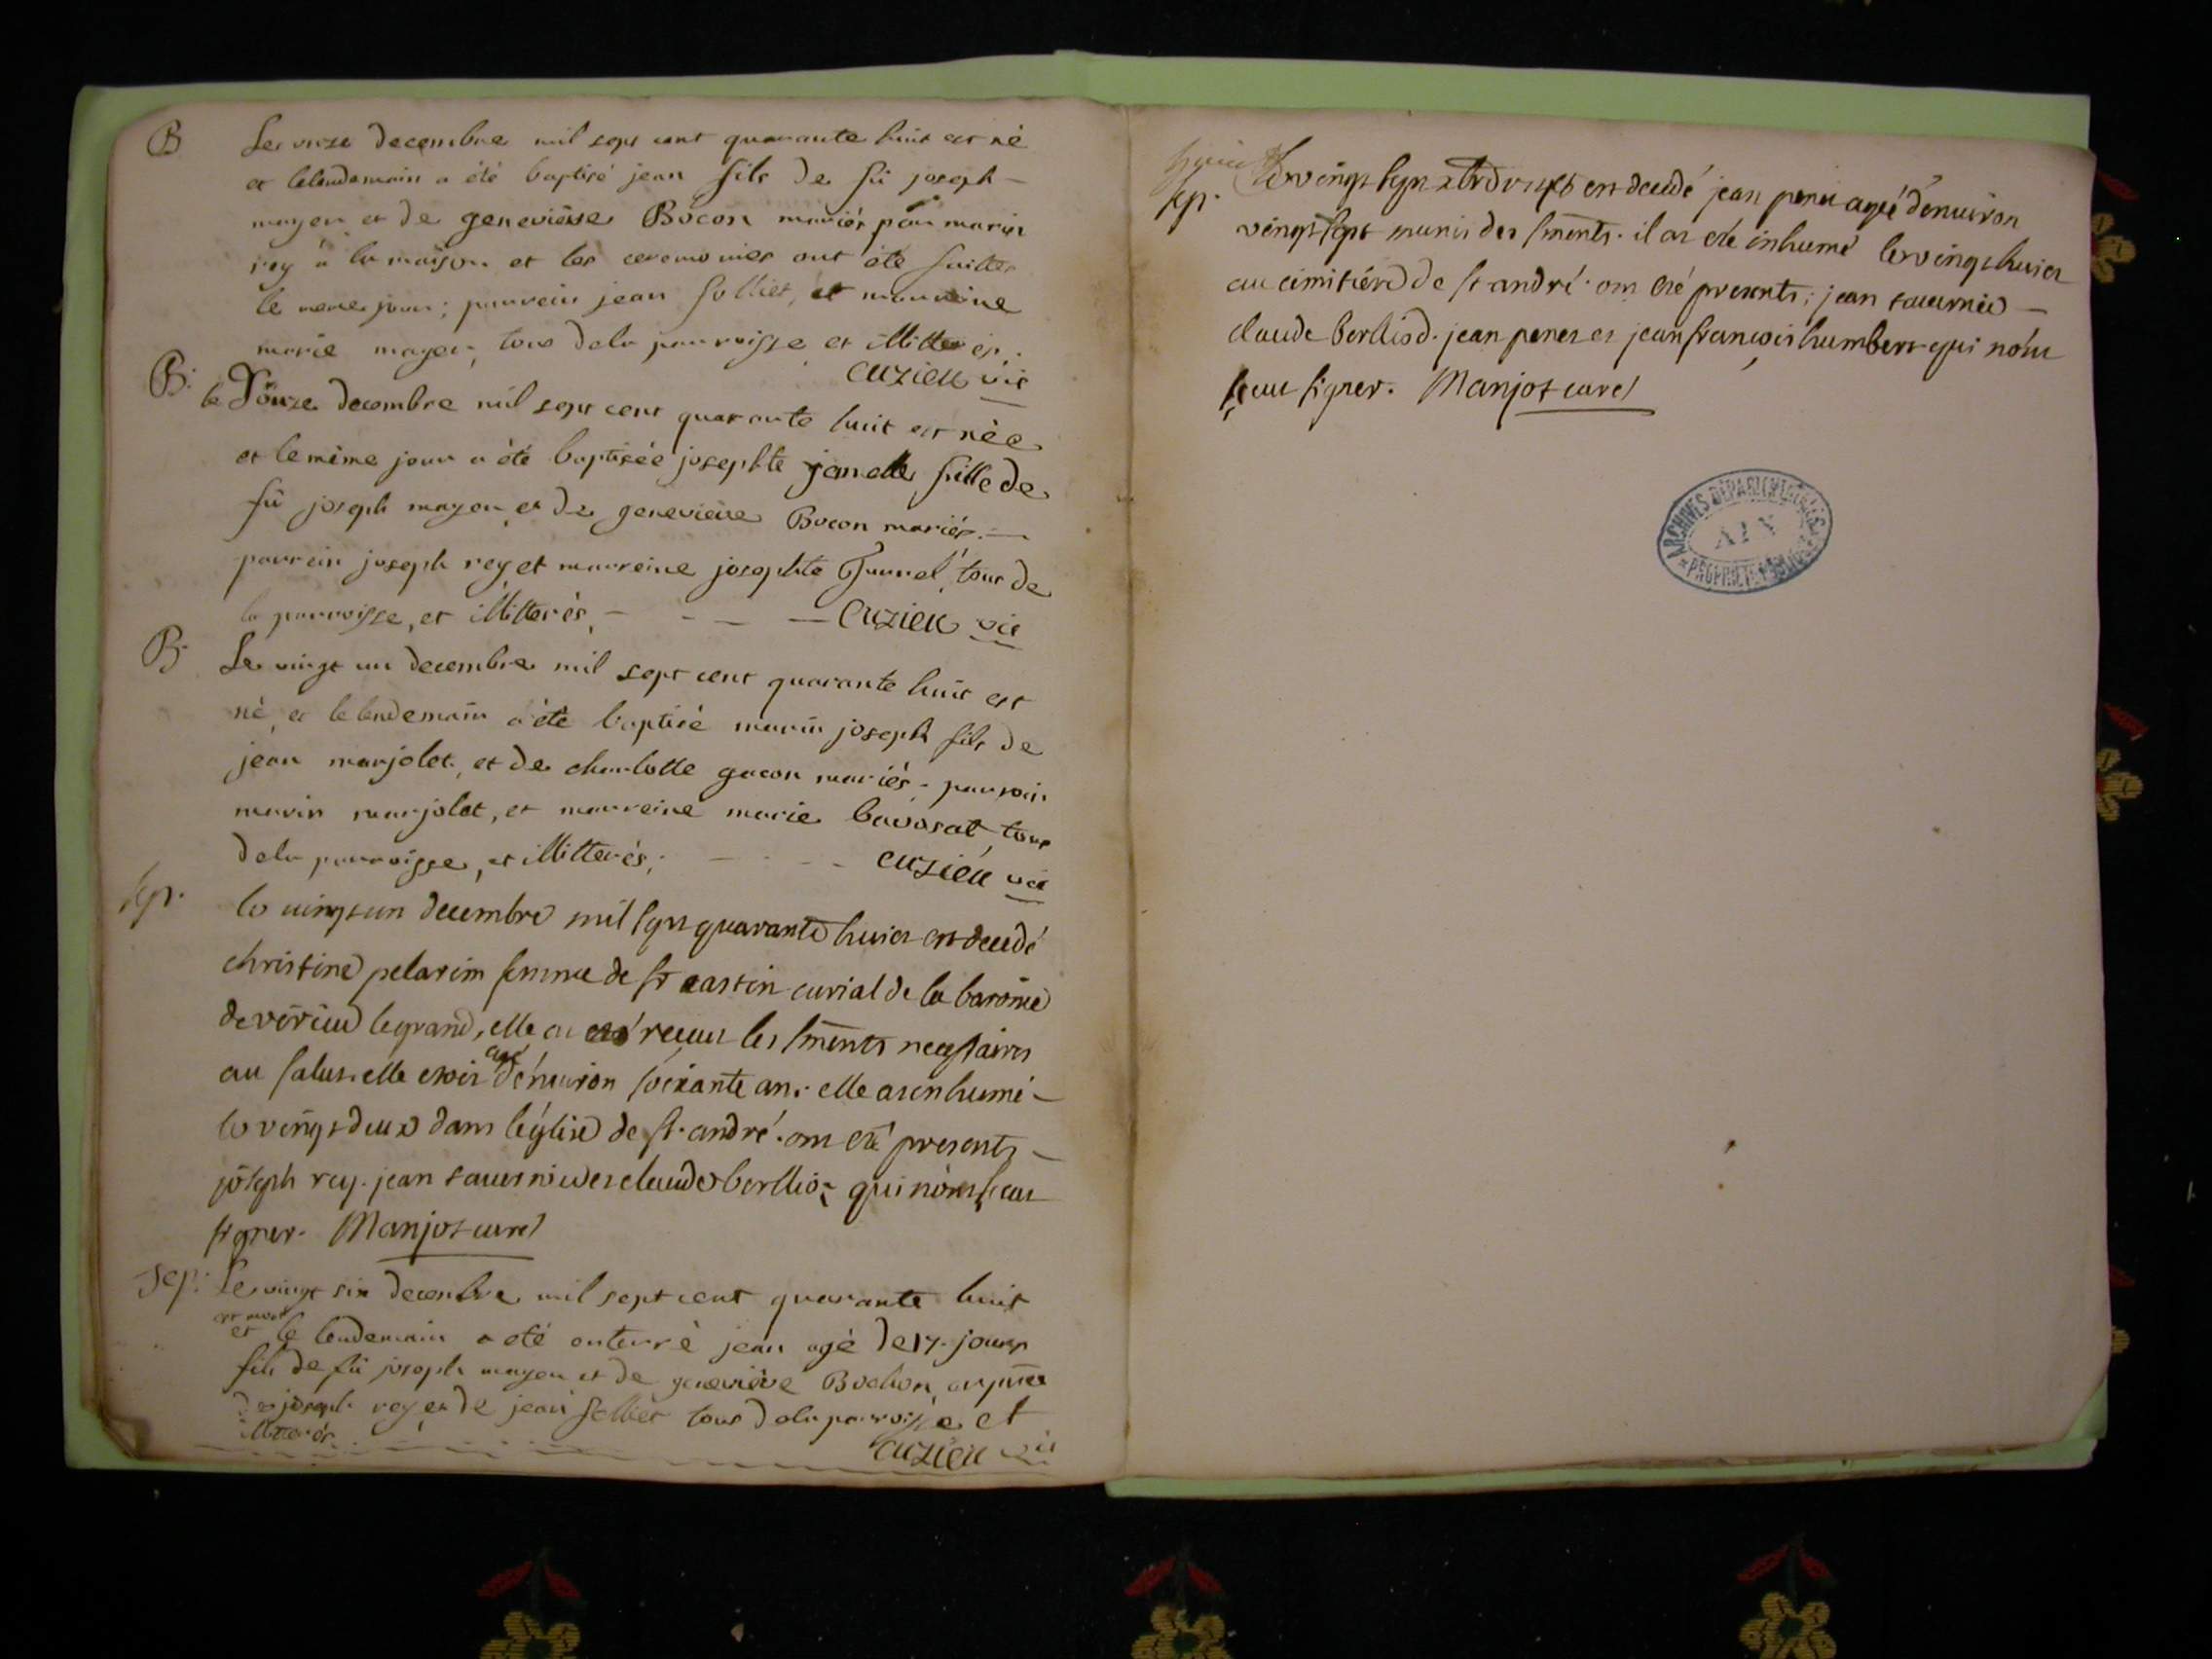 B Le onze decembre mil sept cent quarante huit est né
et lelendemain a été baptisé jean fils de fû joseph –
mayen et de genevieve Bocon mariés par marin
rey a la maison et les ceremonies ont été faittes
le meme jour; parrein jean solliet, et marreine
marie mayen, tous dela parroisse et illitterés.
cuzieu vic
B. le Douze decembre mil sept cent quarante huit est née
et le même jour a été baptisée josephte janette fille de
fû joseph mayen et de genevieve Bocon mariés. –
parrein joseph rey et marreine josephte, tous de
la parroisse, et illitterés, – – – – cuzieu vic
B. Le vingt un decembre mil sept cent quarante huit est
né et le lendemain a été baptisé marin joseph fils de
jean marjolet, et de charlotte gacon mariés. parrein
marin marjolet, et marreine marie bavosat, tous
dela parroisse, et illitterés; – – – cuzieu vic
sep. le vingt un decembre mil sept quarante huict est decedé
christine pelarin femme de sr castin curial de la baronie
de virieu legrand, elle a receu les sments necessaires
au salut. elle etoit agé d'environ soixante ans. elle a inhumé –
le vingt deux dans l'église de st. andré. ont eté presents –
joseph rey. jean et claude berllioz qui n'ont sceu
signer. Manjot curé
Sep. Le vingt six decembre mil sept cent quarante huit
est mort
et le lendemain a été enterré jean agé de 17. jours
fils de fû joseph mayen et de genevieve Bochon, en pnce
de joseph rey et de jean solliet tous dela parroisse et
illitterés.
cuzieu vic
sep. le vingt sept est decedé jean penet agé d'environ
vingt sept munis des sments. il at eté inhumé le vingt huict
au cimitiére de st andré. ont eté presents; jean –
claude berllioz. jean penet et jean françois humbert qui n'ont
sceu signer. Manjot curé
ARCHIVES DÉPARTEMENTALES
AIN
* PROPRIÉTÉ PUBLIQUE *